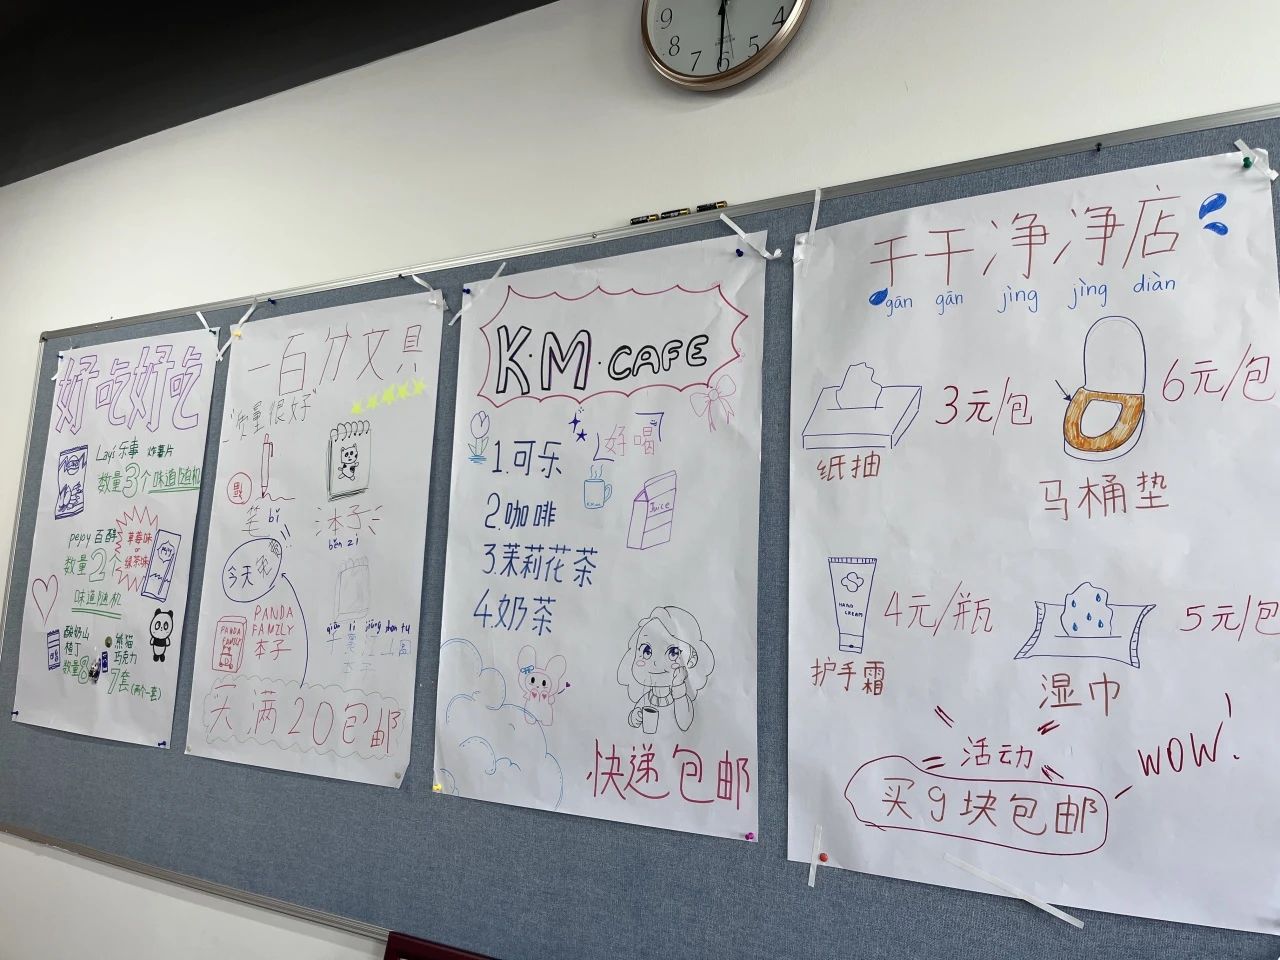 9
8
7
6
5
4
好吃好吃
Lay's 乐事 炸薯片
数量3个味道随机
pepy百醇
数量2个
草莓味
or
绿茶味
味道随机
酸奶山楂丁
数量8
熊猫
巧克力
7套(两个一套)
一百分文具
"质量很好"
笔 bǐ
本子
běn zi
今天
PANDA
FAMILY
PANDA
FAMILY
本子
qiān lǐ jiāng shān tú
千里江山图
本子
天满20包邮
K·M·CAFE
好喝
1.可乐
2.咖啡
3.茉莉花茶
4.奶茶
Juice
快递包邮
干干净净店
gān gān jìng jìng diàn
3元/包
纸抽
6元/包
马桶垫
HAND
CREAM
4元/瓶
护手霜
5元/包
湿巾
活动
买9块包邮
WOW!